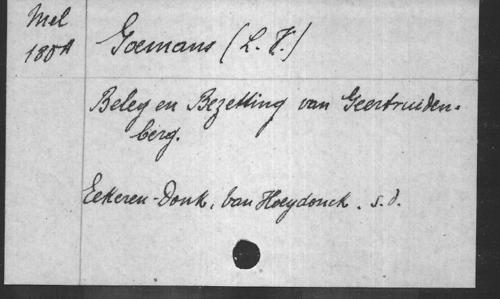 Mel
180A
Goemans (L. V.)
Beleg en Bezetting van Geertruiden-
berg.
Eekeren-Donk, Van Hoeydonck. s.d.